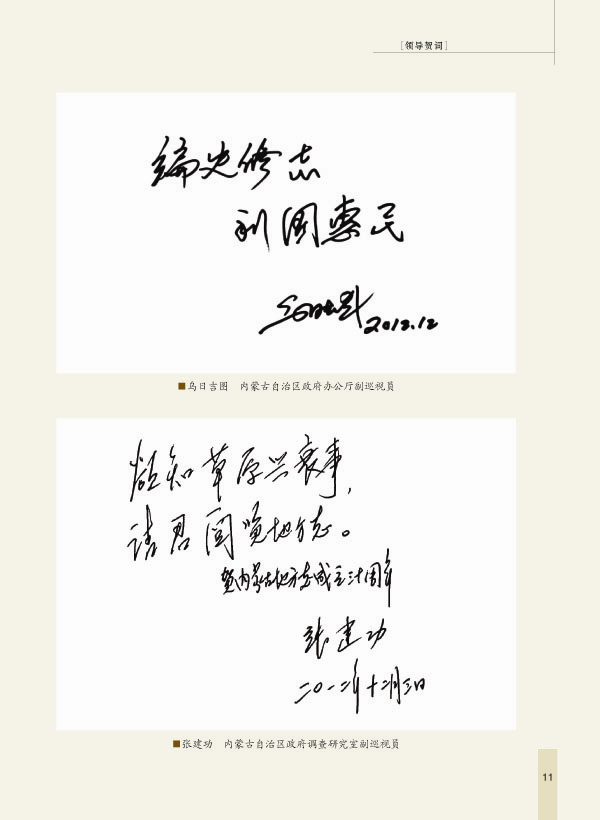 [领导贺词]
编史修志
利国惠民
2012.12
■乌日吉图 内蒙古自治区政府办公厅副巡视员
欲知草原兴衰事，
请君阅览地方志。
贺内蒙古地方志成立三十周年
张建功
二〇一二年十二月三日
■张建功 内蒙古自治区政府调查研究室副巡视员
11